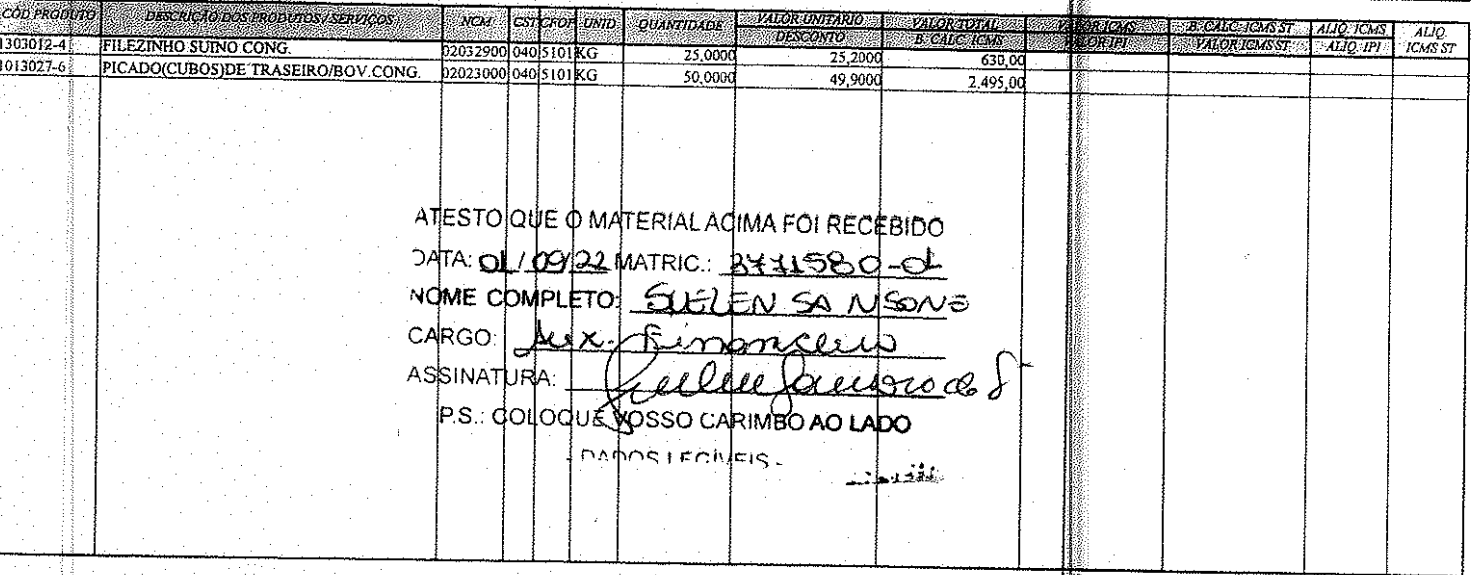 CÓD PRODUTO DESCRIÇÃO DOS PRODUTOS / SERVIÇOS NCM CST CFOP UNID QUANTIDADE VALOR UNITÁRIO VALOR TOTAL VALOR ICMS B. CALC. ICMS ST ALIQ. ICMS ALIQ.
DESCONTO B. CALC. ICMS VALOR IPI VALOR ICMS ST ALIQ. IPI ICMS ST
1303012-4 FILEZINHO SUINO CONG. 02032900 040 5101 KG 25,0000 25,2000 630,00
1013027-6 PICADO(CUBOS)DE TRASEIRO/BOV.CONG. 02023000 040 5101 KG 50,0000 49,9000 2.495,00
ATESTO QUE O MATERIAL ACIMA FOI RECEBIDO
DATA: 01/09/22 MATRIC.:
NOME COMPLETO: SUELEN SANSONE
CARGO: Aux. Financeiro
ASSINATURA:
P.S.: COLOQUE VOSSO CARIMBO AO LADO
- DADOS LEGÍVEIS -